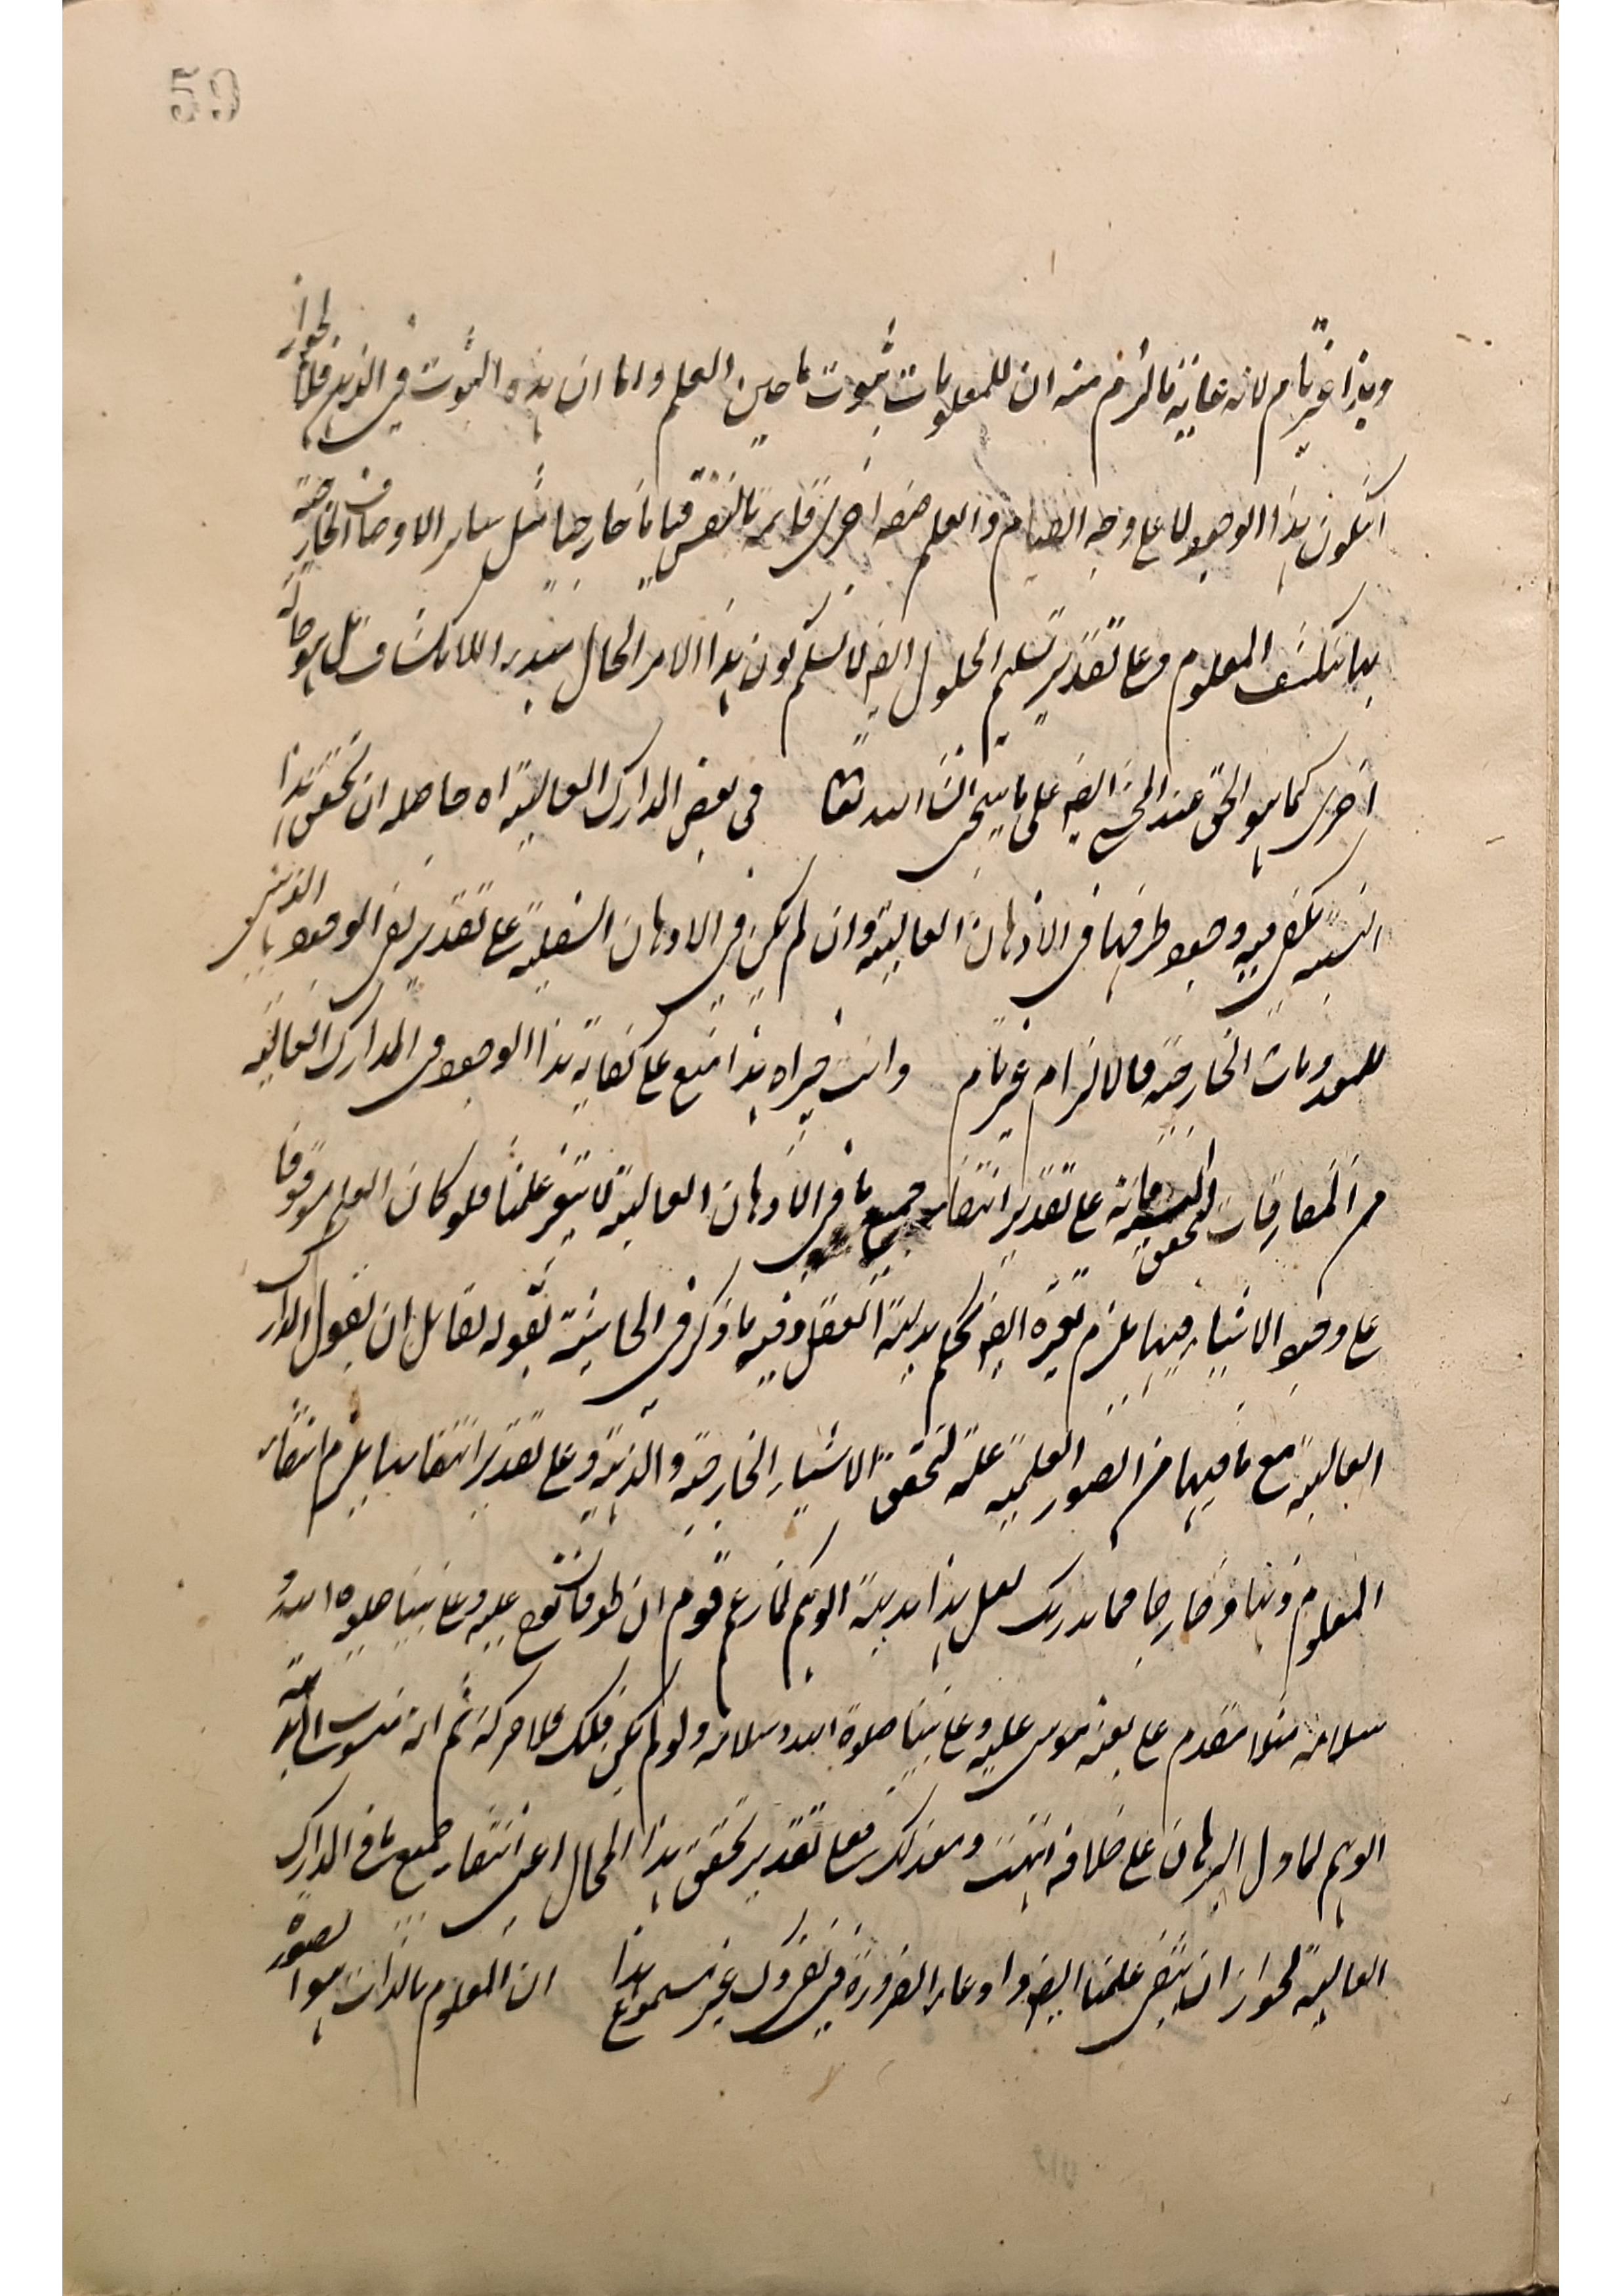 59
وهذا غير تام لانه غاية ما لزم منه ان للمعلومات ثبوت ما حين العلم واما ان هذه الثبوت في الذهن فلا لجواز
ان يكون هذا الوجود لا على وجه القيام والعلم صفة اخرى قائمة بالنفس قياما خارجيا مثل ساير الاوصاف الخارجية
بها ينكشف المعلوم وعلى تقدير تسليم الحلول ايضا لا نسلم كون هذا الامر الحال مبدء الانكشاف بل هو حالة
اخرى كما هو الحق عند المحشي ايضا على ما سيجئ انشاء الله تعالى في بعض المدارك العالية اه حاصله ان تحقق هذا
النسبة يكفي فيه وجود طرفيها في الاذهان العالية وان لم يكن في الاذهان السفلية على تقدير نفي الوجود الذهني
للمعدومات الخارجية فالالزام غير تام وانت خبير اه هذا منع على كفاية هذا الوجود في المدارك العالية
من المفارقات لتحقق النسبة فانه على تقدير انتفاء جميع ما في الاذهان العالية لا يتغير علمنا فلو كان العلم موقوفا
على وجود الاشياء فيها يلزم تغيره ايضا بحكم بديهة العقل وفيه ما ذكر في الحاشية بقوله لقائل ان يقول المدارك
العالية مع ما فيها من الصور العلمية علة لتحقق الاشياء الخارجية والذهنية وعلى تقدير انتفائها يلزم انتفاء
المعلوم ذهنا وخارجا فما يدريك لعل هذا بديهة الوهم كما زعم قوم ان طوفان نوح عليه وعلى نبينا صلوة الله و
سلامه مثلا مقدم على بعثة موسى عليه وعلى نبينا صلوة الله وسلامه ولو لم يكن فلك فلا حركة ثم انه منسوب الى بديهة
الوهم لما دل البرهان على خلافه انتهت ومع ذلك فعلى تقدير تحقق هذا المحال اعني انتفاء جميع ما في المدارك
العالية لجواز ان ينتفي علمنا ايضا وادعاء الضرورة في نفي ذلك غير مسموع هذا ان المعلوم بالذات هو الصورة